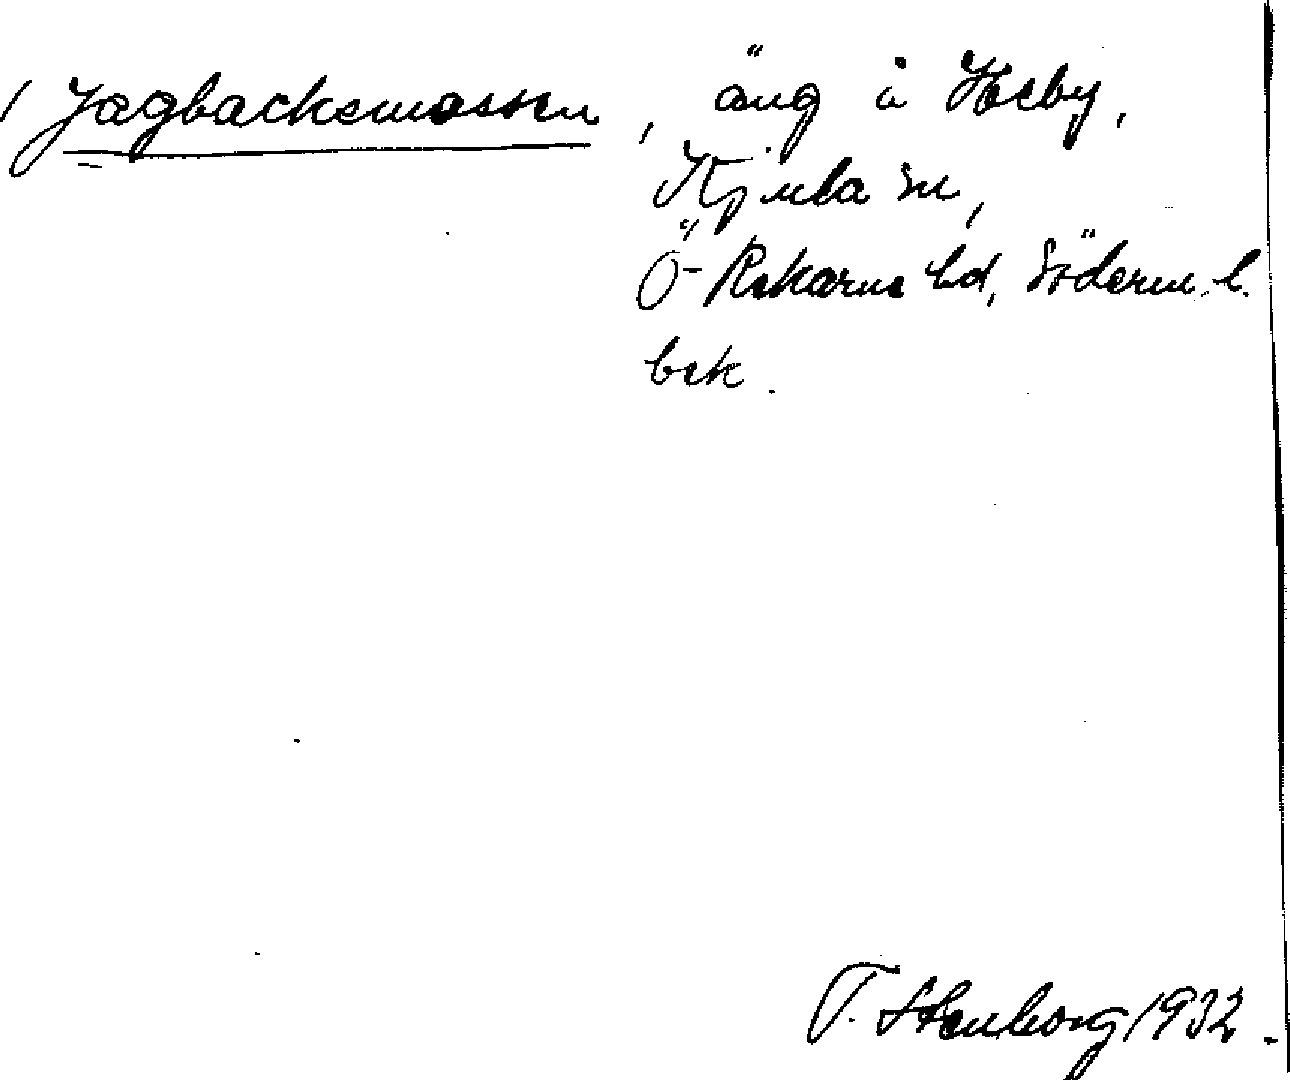 Jagbackemossen, äng å Heby,
Kjula sn,
Ö-Rekarne hd, Söderm. l.
bek.
T. Stenborg 1932.